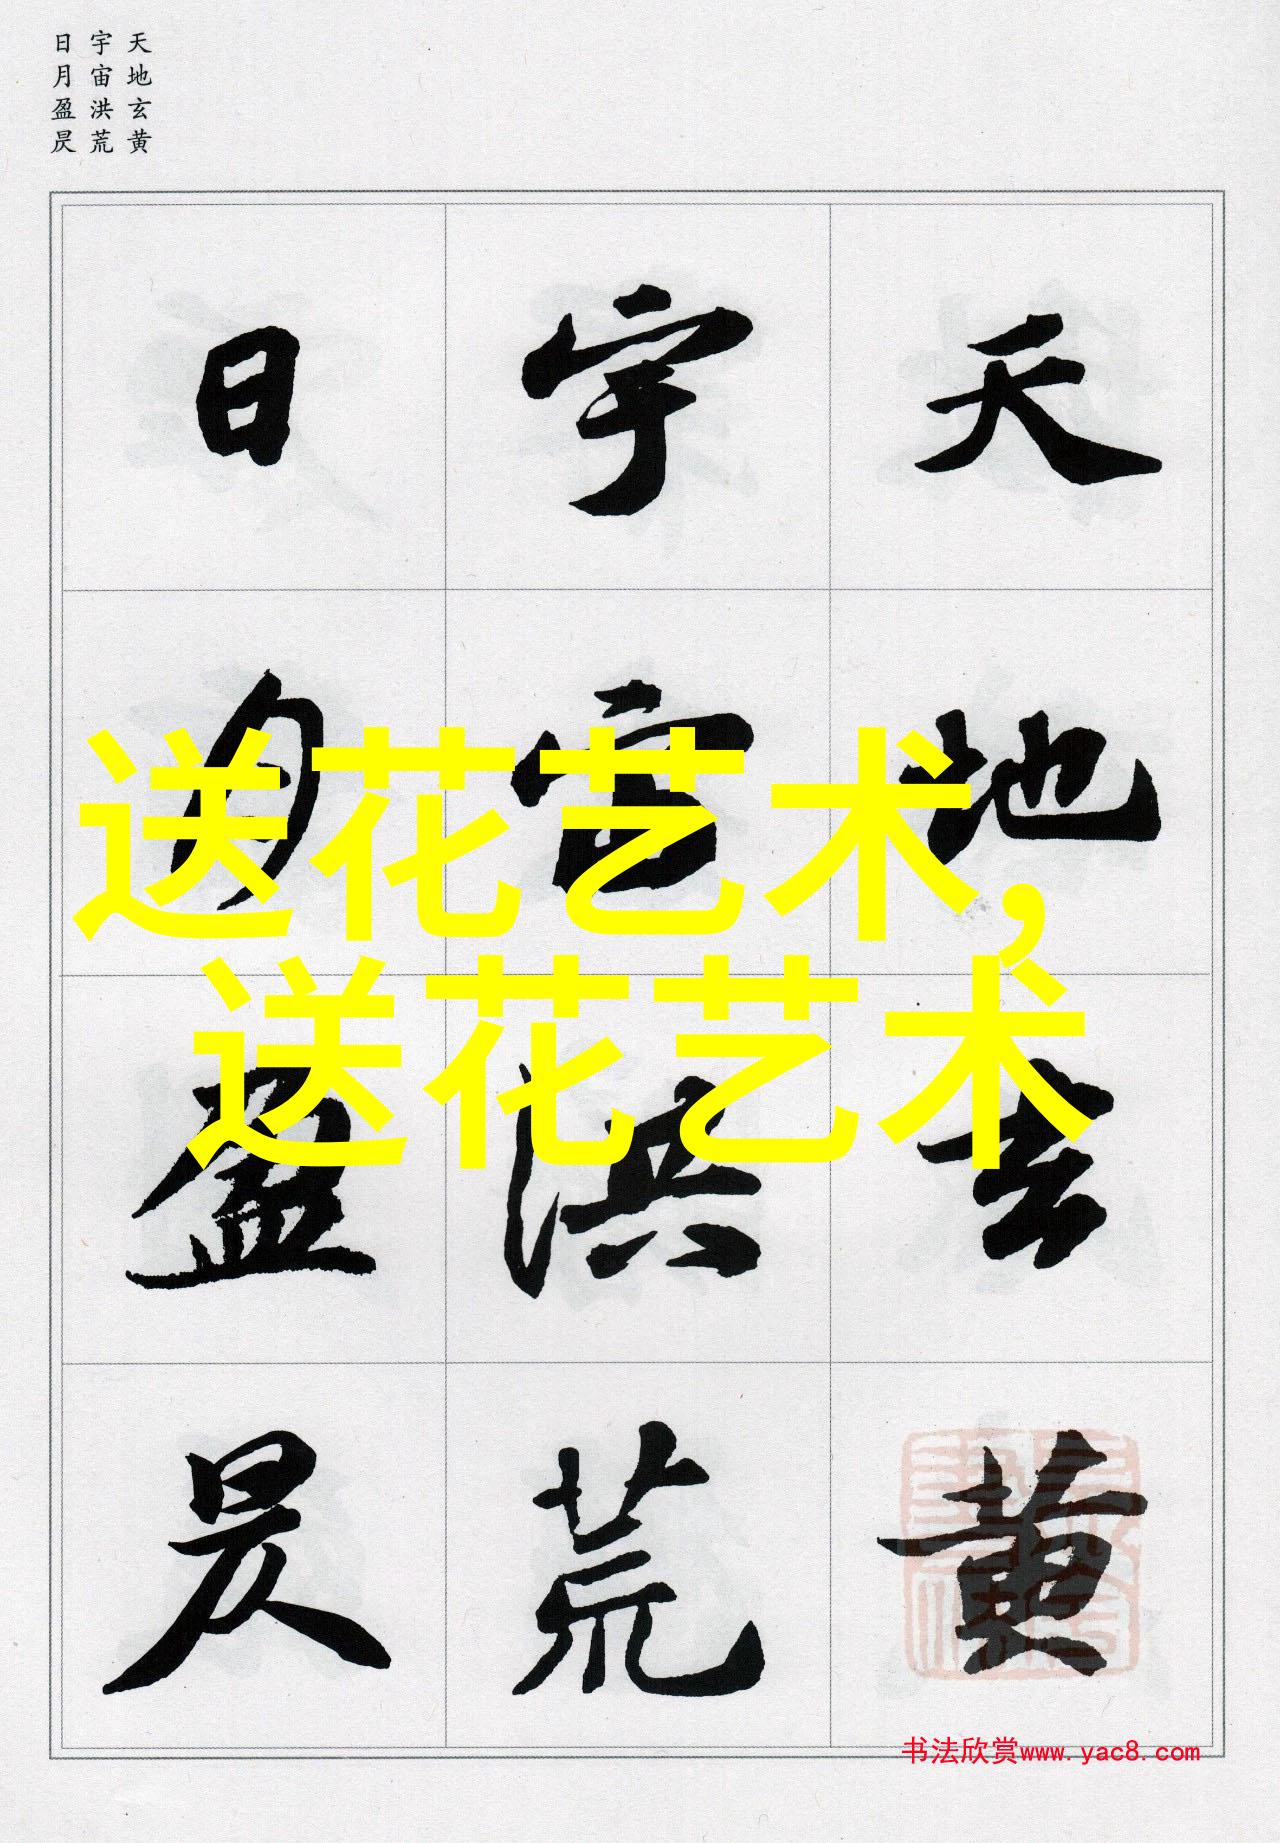 天地玄黄
宇宙洪荒
日月盈昃
天地玄黄
宇宙洪荒
日月盈昃
送花艺术,
送花艺术
书法欣赏www.yac8.com